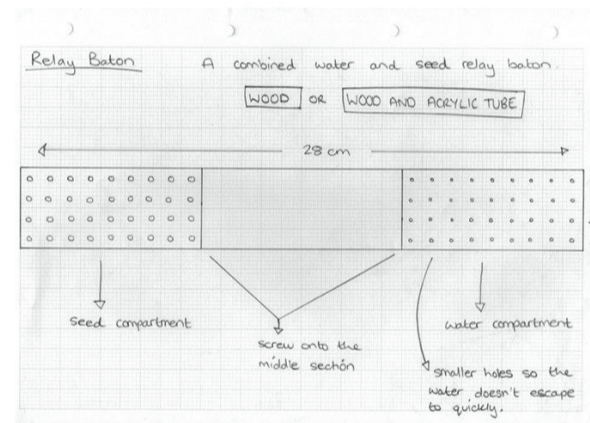 Relay Baton
A combined water and seed relay baton.
WOOD OR WOOD AND ACRYLIC TUBE
28 cm
Seed compartment
screw onto the
middle section
water compartment
smaller holes so the
water doesn't escape
to quickly.